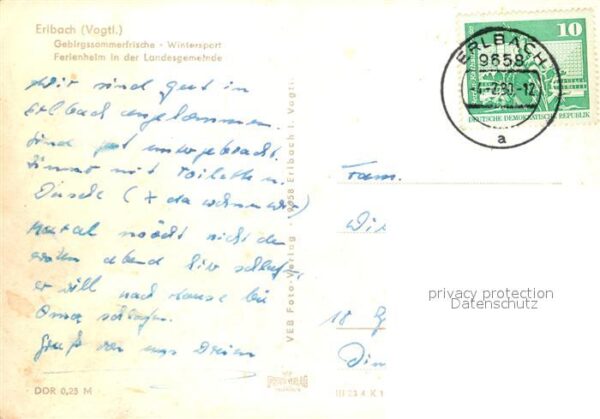 Erlbach (Vogtl.)
Gebirgssommerfrische · Wintersport
Ferienheim in der Landesgemeinde
Wir sind gut in
Erlbach angekommen.
Sind gut untergebracht.
Zimmer mit Toilette u.
Dusche (X da wohnen wir)
möcht nicht den
ersten abend hier schlafen,
er will nach Hause bei
Oma schlafen.
Gruß von uns Dreien
DDR 0,25 M
VEB Foto-Verlag · 9658 Erlbach i. Vogtl.
10
DEUTSCHE DEMOKRATISCHE REPUBLIK
ERLBACH
9658
-12
a
Fam.
Wi
18 G
privacy protection
Datenschutz
III 23 4 K 1